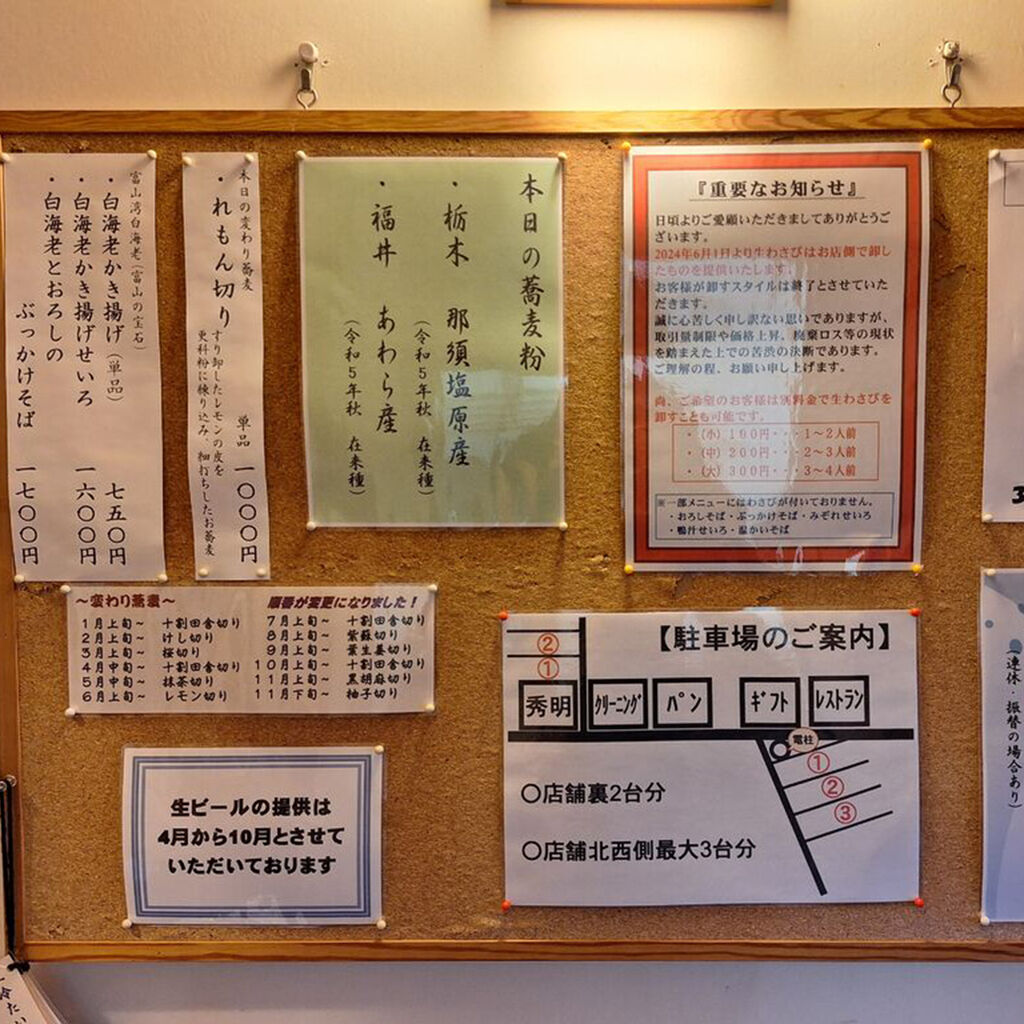 富山湾白海老(富山の宝石)
・白海老かき揚げ(単品) 七五〇円
・白海老かき揚げせいろ 一六〇〇円
・白海老とおろしの
ぶっかけそば 一七〇〇円
本日の変わり蕎麦
・れもん切り 単品 一〇〇〇円
すり卸したレモンの皮を
更科粉に練り込み、細打ちしたお蕎麦
本日の蕎麦粉
・栃木 那須塩原産
(令和5年秋 在来種)
・福井 あわら産
(令和5年秋 在来種)
『重要なお知らせ』
日頃よりご愛顧いただきましてありがとうご
ざいます。
2024年6月1日より生わさびはお店側で卸し
たものを提供いたします。
お客様が卸すスタイルは終了とさせていた
だきます。
誠に心苦しく申し訳ない思いでありますが、
取引量制限や価格上昇、廃棄ロス等の現状
を踏まえた上での苦渋の決断であります。
ご理解の程、お願い申し上げます。
尚、ご希望のお客様は別料金で生わさびを
卸すことも可能です。
・(小)100円・・・1~2人前
・(中)200円・・・2~3人前
・(大)300円・・・3~4人前
※一部メニューにはわさびが付いておりません。
・おろしそば・ぶっかけそば・みぞれせいろ
・鴨汁せいろ・温かいそば
~変わり蕎麦~
1月上旬~ 十割田舎切り
2月上旬~ けし切り
3月上旬~ 桜切り
4月中旬~ 十割田舎切り
5月中旬~ 抹茶切り
6月上旬~ レモン切り
順番が変更になりました!
7月上旬~ 十割田舎切り
8月上旬~ 紫蘇切り
9月上旬~ 葉生姜切り
10月上旬~ 十割田舎切り
11月上旬~ 黒胡麻切り
11月下旬~ 柚子切り
生ビールの提供は
4月から10月とさせて
いただいております
【駐車場のご案内】
②
①
秀明 クリーニング パン ギフト レストラン
電柱
①
②
③
〇店舗裏2台分
〇店舗北西側最大3台分
(連休・振替の場合あり)